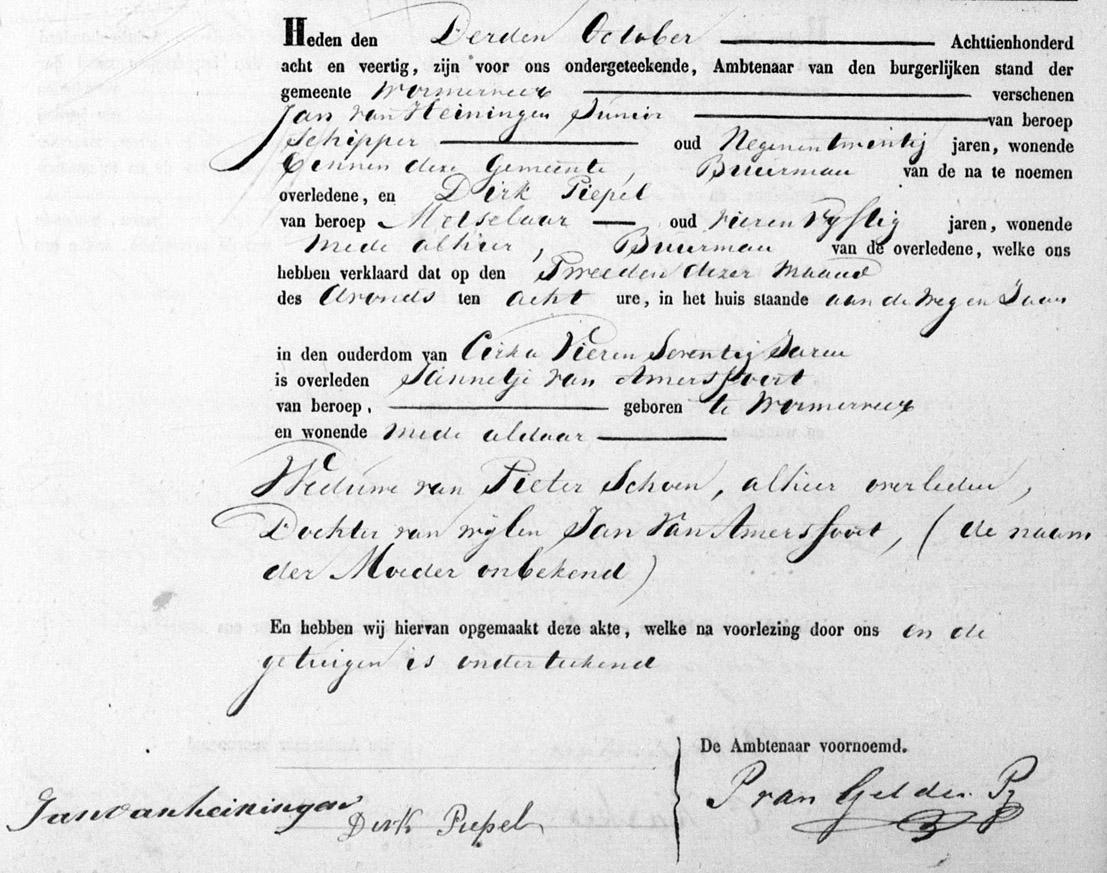 Heden den Derden October Achttienhonderd
acht en veertig, zijn voor ons ondergeteekende, Ambtenaar van den burgerlijken stand der
gemeente Wormerveer verschenen
Jan van Heiningen Junior van beroep
Schipper oud Negenentwintig jaren, wonende
binnen deze Gemeente, Buurman van de na te noemen
overledene, en Dirk Piepel
van beroep Metselaar oud vieren vyftig jaren, wonende
mede alhier, Buurman van de overledene, welke ons
hebben verklaard dat op den Tweeden dezer maand
des Avonds ten acht ure, in het huis staande aan de weg en Zaan
in den ouderdom van Cirka Vieren Seventig Jaren
is overleden Jannetje van Amersfoort
van beroep, geboren te Wormerveer
en wonende mede aldaar
Weduwe van Pieter Schoen, alhier overleden,
Dochter van wijlen Jan Van Amersfoort, (de naam
der Moeder onbekend)
En hebben wij hiervan opgemaakt deze akte, welke na voorlezing door ons en de
getuigen is onderteekend
De Ambtenaar voornoemd.
Jan van heiningen
Dirk Piepel
P van Gelder Pz